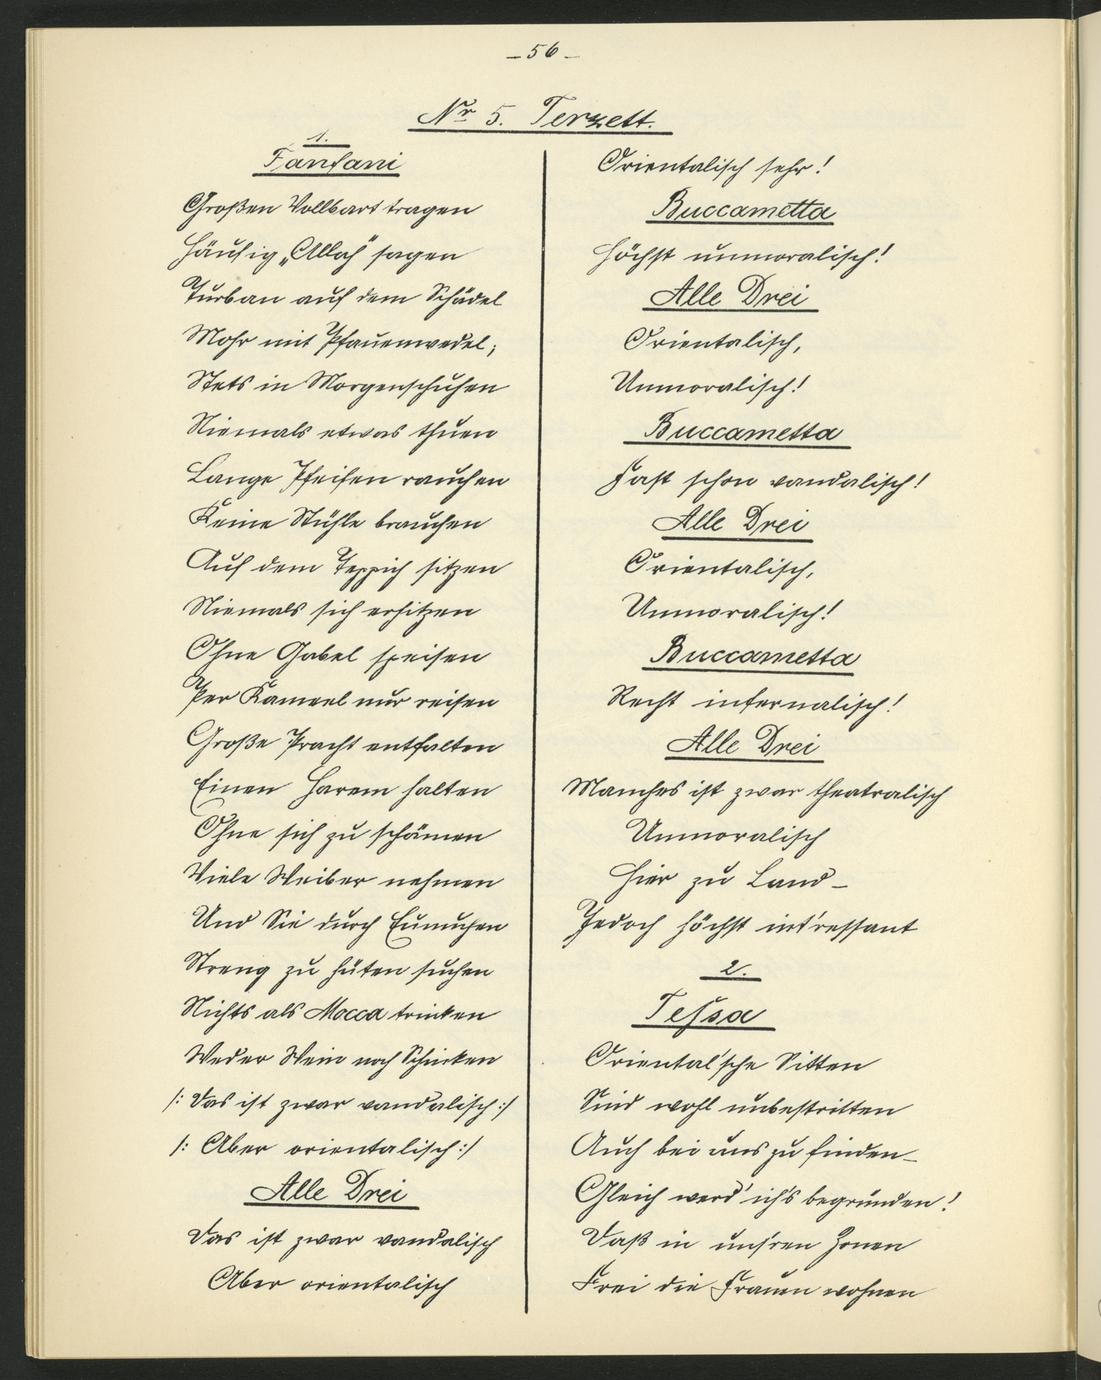 – 56 –
Nr 5. Terzett.
1.
Fanfani
Großen Vollbart tragen
Häufig „Allah" sagen
Turban auf dem Schädel
Mohr mit Pfauenwedel;
Stets in Morgenschuhen
Niemals etwas thuen
Lange Pfeifen rauchen
Keine Stühle brauchen
Auf dem Teppich sitzen
Niemals sich erhitzen
Ohne Gabel speisen
Per Kameel nur reisen
Große Pracht entfalten
Einen Harem halten
Ohne sich zu schämen
Viele Weiber nehmen
Und Sie durch Eunuchen
Streng zu hüten suchen
Nichts als Mocca trinken
Weder Wein noch Schinken
/: Das ist zwar vandalisch :/
/: Aber orientalisch :/
Alle Drei
Das ist zwar vandalisch
Aber orientalisch
Orientalisch sehr!
Buccametta
Höchst unmoralisch!
Alle Drei
Orientalisch,
Unmoralisch!
Buccametta
Fast schon vandalisch!
Alle Drei
Orientalisch,
Unmoralisch!
Buccametta
Recht infernalisch!
Alle Drei
Manches ist zwar theatralisch
Unmoralisch
Hier zu Land –
Jedoch höchst int'ressant
2.
Tessa
Oriental'sche Sitten
Sind wohl unbestritten
Auch bei uns zu finden –
Gleich werd' ich's begründen!
Daß in uns'ren Zonen
Frei die Frauen wohnen